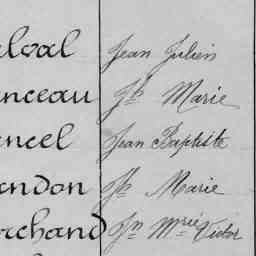 lval Jean Julien
nceau Jh Marie
ncel Jean Baptiste
andon Jh Marie
rchand Jn Mrie Victor